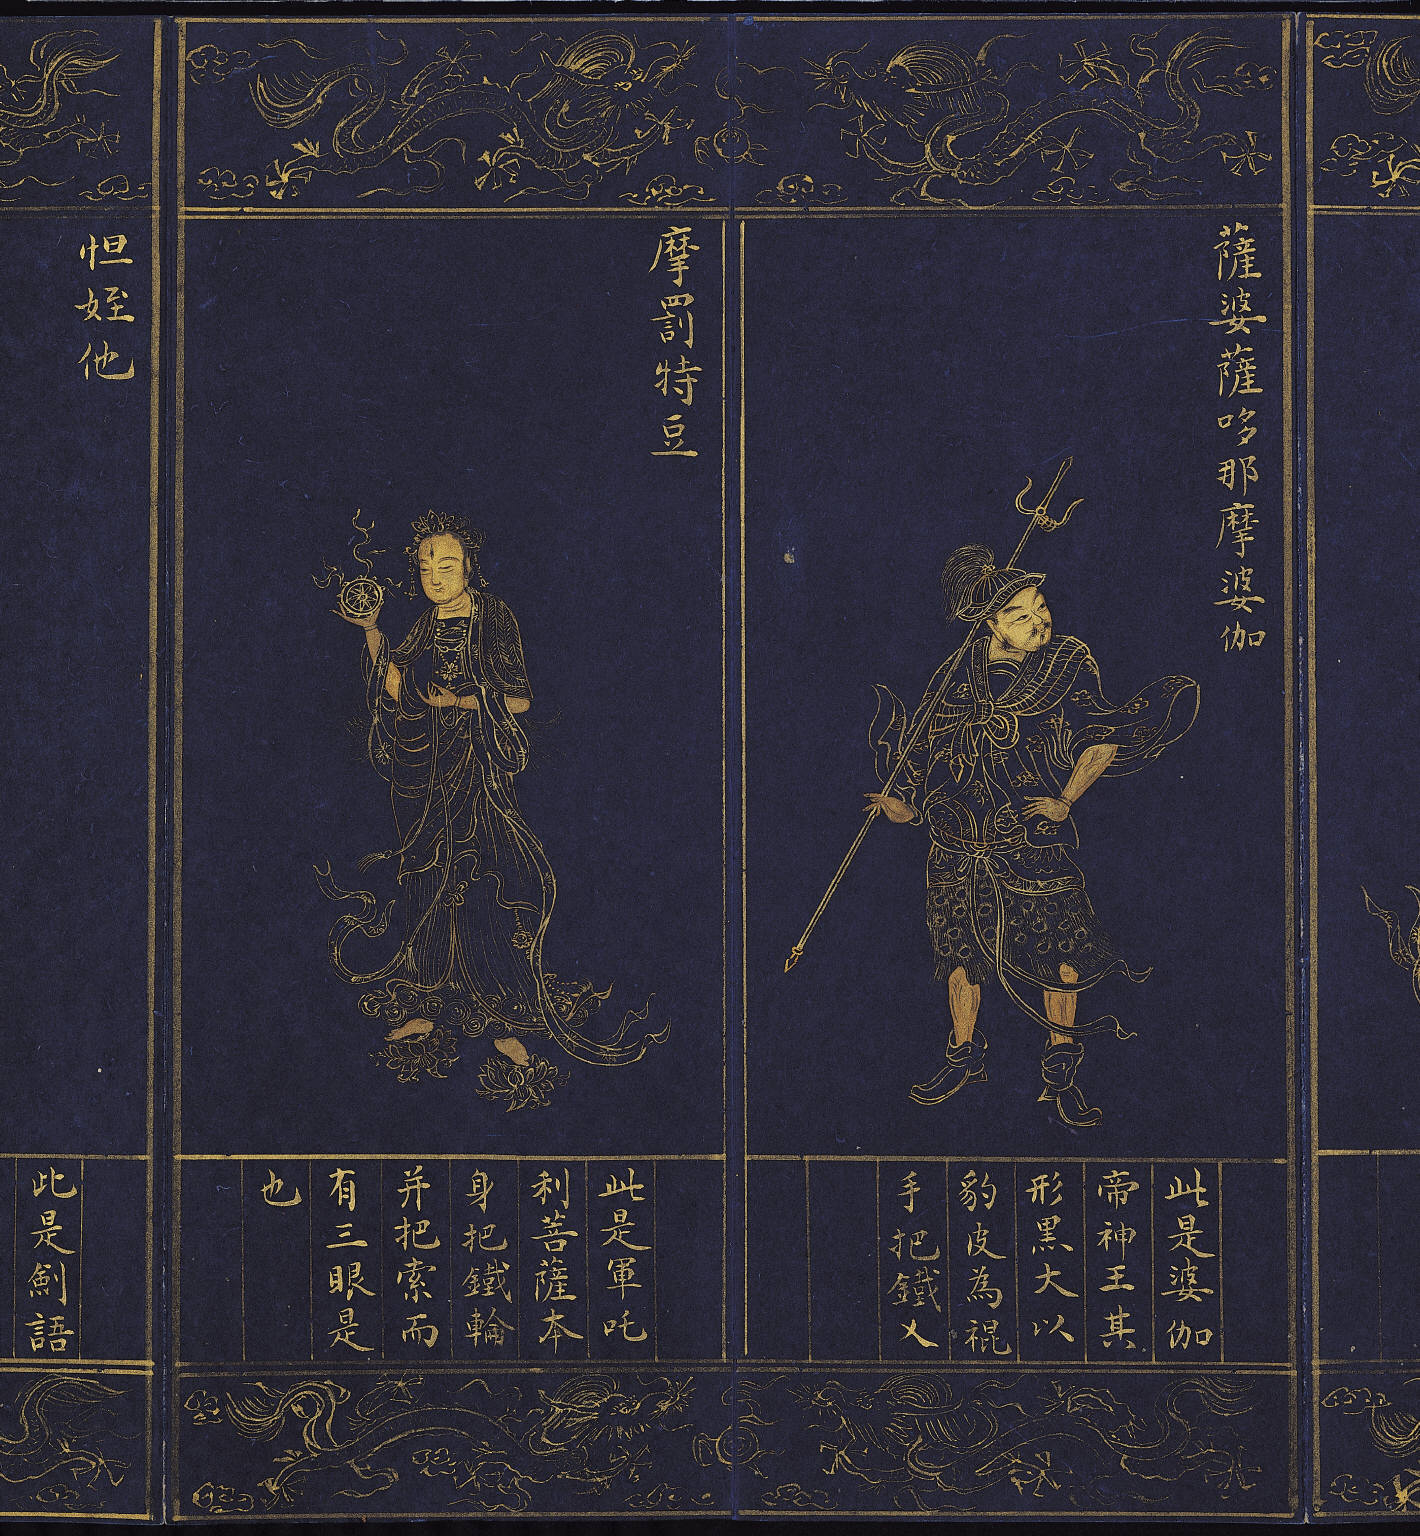 薩婆薩哆那摩婆伽
此是婆伽
帝神王其
形黑大以
豹皮為裩
手把鐵乂
摩罰特豆
此是軍吒
利菩薩本
身把鐵輪
并把索而
有三眼是
也
怛姪他
此是劍語